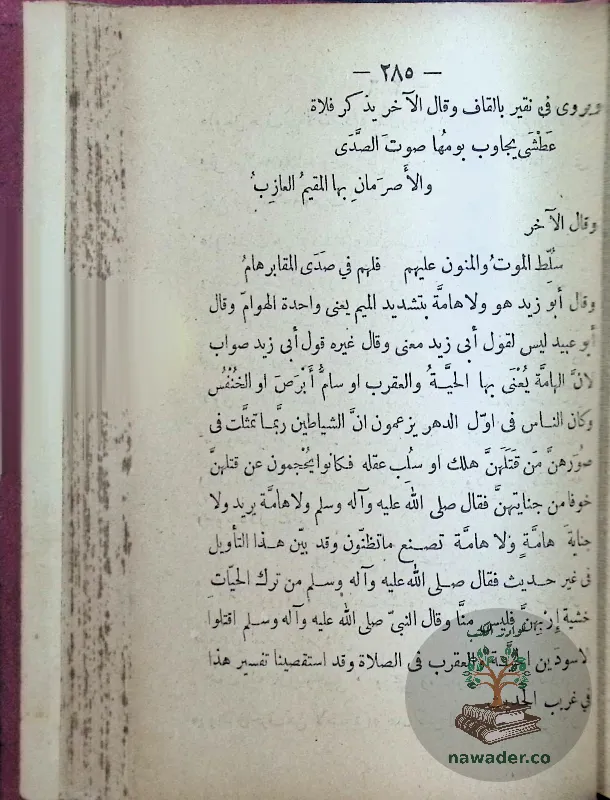 — ٢٨٥ —
ويروى فى نقير بالقاف وقال الآخر يذكر فلاة
عَطْشَى يجاوب بومهُا صوتَ الصَّدَى
والأَصرَمانِ بها المقيمُ العازِبُ
وقال الآخر
سُلّطِ الموتُ والمنون عليهم فلهم في صَدَى المقابر هامُ
وقال أبو زيد هو ولا هامَّة بتشديد الميم يعنى واحدة الهوامّ وقال
أبو عبيد ليس لقول أبى زيد معنى وقال غيره قول أبى زيد صواب
لانَّ الهامَّة يُعْنَى بها الحيَّةُ والعقرب او سامُّ أَبْرَصَ او الخُنْفُس
وكان الناس فى اوّل الدهر يزعمون انَّ الشياطين ربَّما تمثَّلت فى
صُوَرهنَّ مَن قَتَلَهنَّ هلك او سُلِب عقله فكانوا يُحْجمون عن قتلهنَّ
خوفا من جنايتهنَّ فقال صلى الله عليه وآله وسلم ولا هامَّة يريد ولا
جنايةَ هامَّةٍ ولا هامَّة تصنع ما تظنّون وقد بيّن هذا التأويل
فى غير حديث فقال صلى الله عليه وآله وسلم من ترك الحيّات
خشية إرْبهنَّ فليس منَّا وقال النبىّ صلى الله عليه وآله وسلم اقتلوا
الاسودَين الحيَّة والعقرب فى الصلاة وقد استقصينا تفسير هذا
فى غريب الحديث
نوادر الكتب
nawader.co